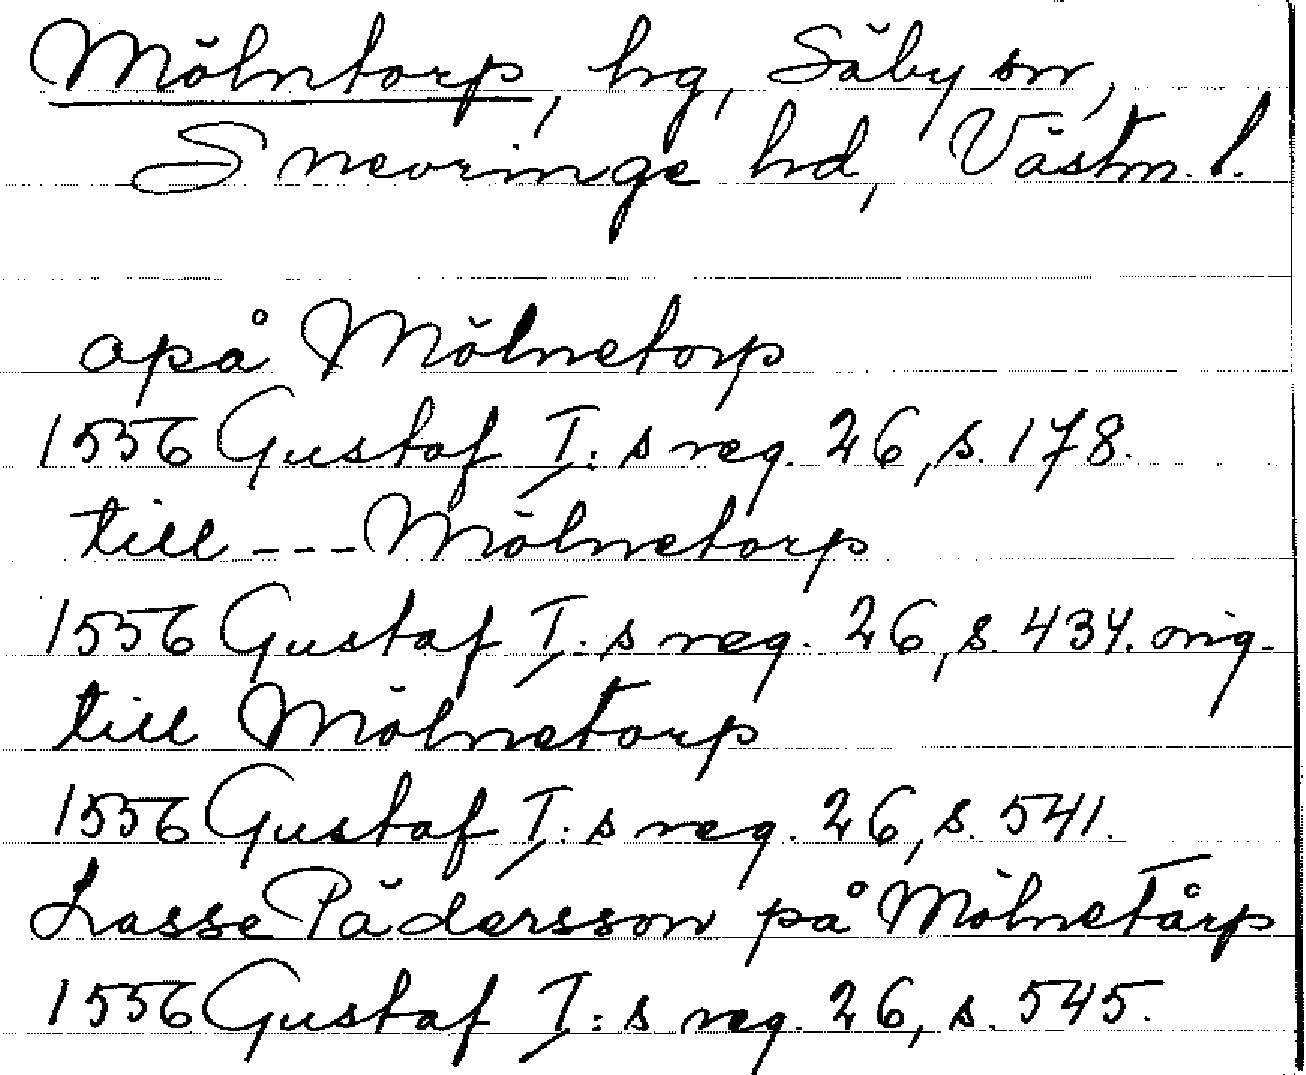 Mölntorp, hg, Säby sn,
Snevringe hd, Västm. l.
opå Mölnetorp
1556 Gustaf I:s reg. 26, s. 178.
till --- Mölnetorp
1556 Gustaf I:s reg. 26, s. 434. orig.
till Mölnetorp
1556 Gustaf I:s reg. 26, s. 541.
Lasse Pädersson på Mölnetårp
1556 Gustaf I:s reg. 26, s. 545.